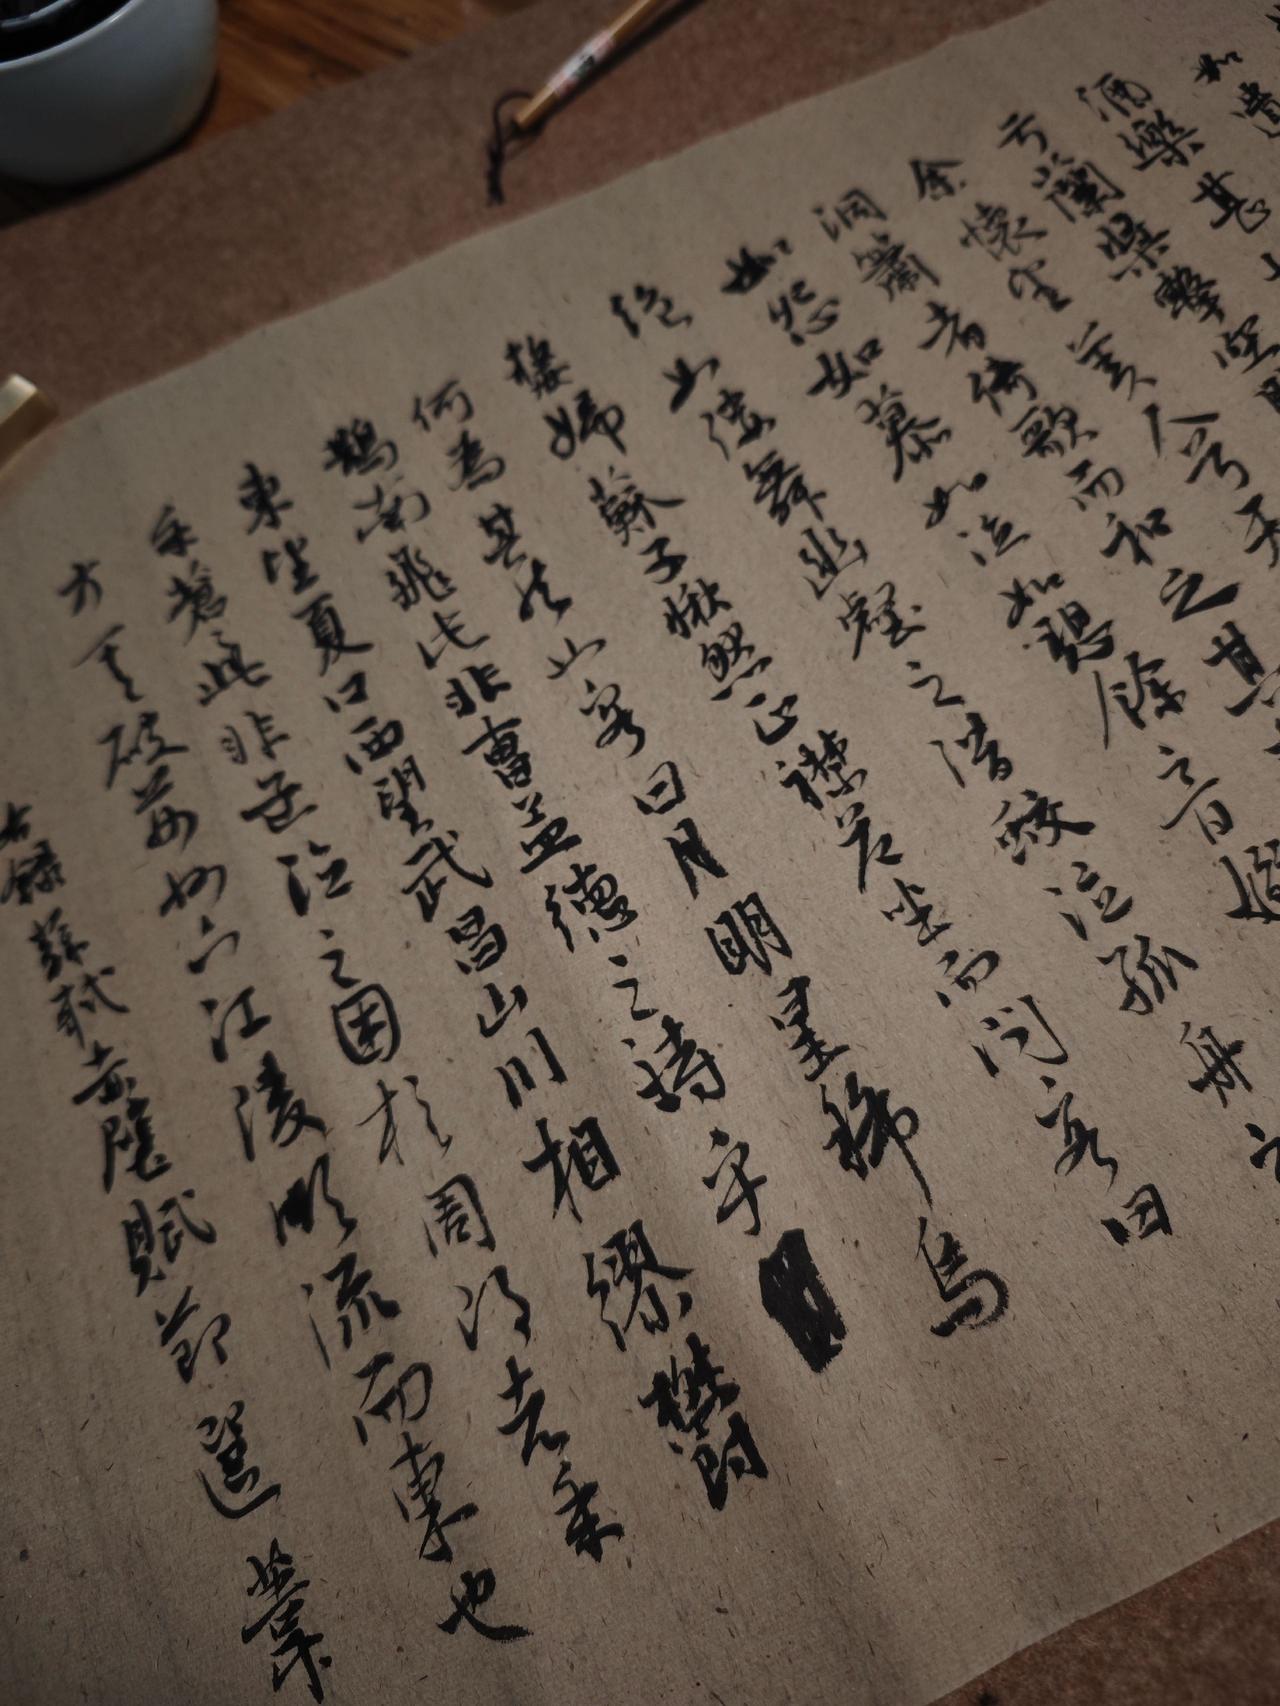 如遺
酒樂甚
兮蘭槳擊空明
余懷望美人兮天
洞簫者倚歌而和之其
如怨如慕如泣如愬餘音嫋
絕如縷舞幽壑之潛蛟泣孤舟之
嫠婦蘇子愀然正襟危坐而問客曰
何為其然也客曰月明星稀烏
鵲南飛此非曹孟德之詩乎
東望夏口西望武昌山川相繆鬱
乎蒼々此非孟德之困於周郎者乎
方其破荊州下江陵順流而東也
右錄蘇軾赤壁賦節選 葉